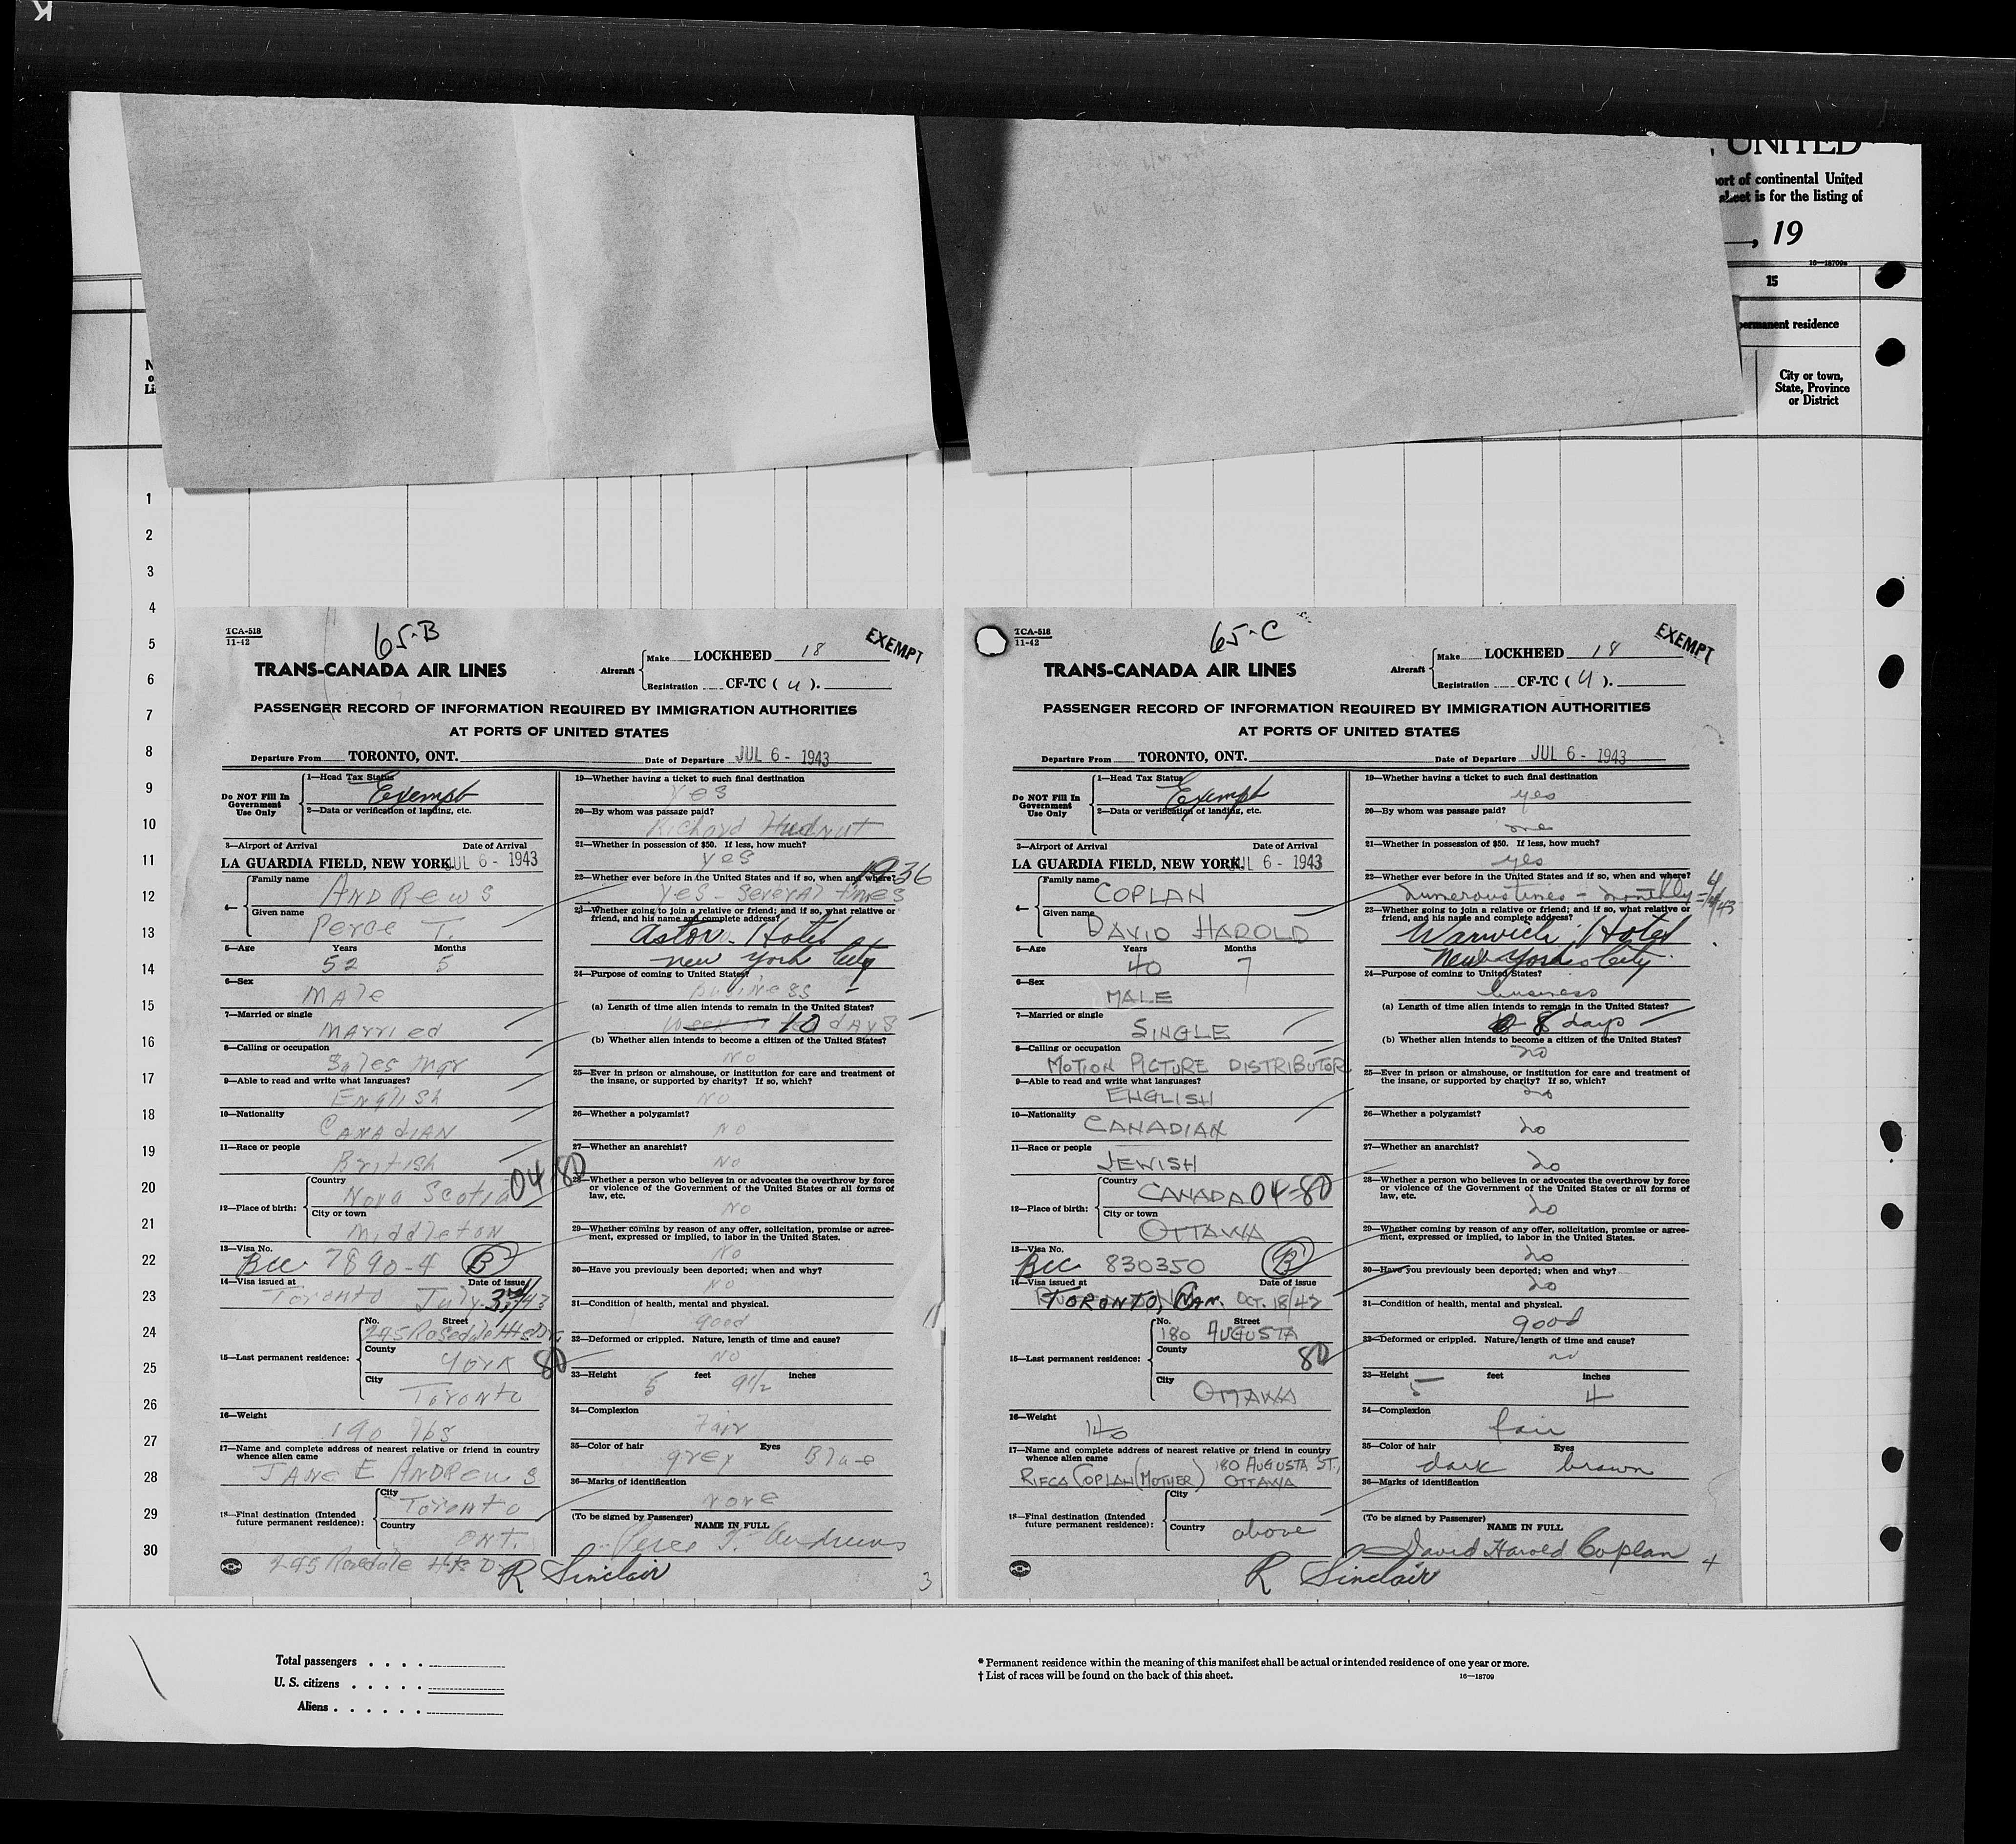 UNITED
port of continental United
sheet is for the listing of
, 19
16—18709a
15
permanent residence
City or town,
State, Province
or District
1
2
3
4
5
6
7
8
9
10
11
12
13
14
15
16
17
18
19
20
21
22
23
24
25
26
27
28
29
30
TCA-518
11-42
65-B
EXEMPT
TRANS-CANADA AIR LINES
Aircraft
Make LOCKHEED 18
Registration CF-TC ( U ).
PASSENGER RECORD OF INFORMATION REQUIRED BY IMMIGRATION AUTHORITIES
AT PORTS OF UNITED STATES
Departure From TORONTO, ONT. Date of Departure JUL 6 - 1943
Do NOT Fill In
Government
Use Only
1—Head Tax Status
Exempt
2—Data or verification of landing, etc.
3—Airport of Arrival Date of Arrival
LA GUARDIA FIELD, NEW YORK JUL 6 - 1943
4—
Family name
ANDREWS
Given name
Perce T.
5—Age Years Months
52 5
6—Sex
Male
7—Married or single
Married
8—Calling or occupation
Sales Mgr
9—Able to read and write what languages?
English
10—Nationality
CANADIAN
11—Race or people
British
04-80
12—Place of birth:
Country
Nova Scotia
City or town
Middleton
13—Visa No.
Bcc 7890-4 B
14—Visa issued at Date of issue
Toronto July 3rd/43
15—Last permanent residence:
No. Street
295 Rosedale Hts Dr.
County
York 80
City
Toronto
16—Weight
190 lbs
17—Name and complete address of nearest relative or friend in country
whence alien came
JANE E ANDREWS
18—Final destination (Intended
future permanent residence):
City
Toronto
Country
ONT.
295 Rosedale Hts Dr
R Sinclair
19—Whether having a ticket to such final destination
Yes
20—By whom was passage paid?
Richard Hudnut
21—Whether in possession of $50. If less, how much?
yes
1936
22—Whether ever before in the United States and if so, when and where?
yes - several times
23—Whether going to join a relative or friend; and if so, what relative or
friend, and his name and complete address?
Astor Hotel
New York City
24—Purpose of coming to United States?
business
(a) Length of time alien intends to remain in the United States?
10 days
(b) Whether alien intends to become a citizen of the United States?
No
25—Ever in prison or almshouse, or institution for care and treatment of
the insane, or supported by charity? If so, which?
No
26—Whether a polygamist?
No
27—Whether an anarchist?
No
28—Whether a person who believes in or advocates the overthrow by force
or violence of the Government of the United States or all forms of
law, etc.
No
29—Whether coming by reason of any offer, solicitation, promise or agree-
ment, expressed or implied, to labor in the United States.
No
30—Have you previously been deported; when and why?
No
31—Condition of health, mental and physical.
good
32—Deformed or crippled. Nature, length of time and cause?
No
33—Height feet inches
5 9 1/2
34—Complexion
Fair
35—Color of hair Eyes
grey Blue
36—Marks of identification
none
(To be signed by Passenger)
NAME IN FULL
Perce T. Andrews
3
TCA-518
11-42
65-C
EXEMPT
TRANS-CANADA AIR LINES
Aircraft
Make LOCKHEED 18
Registration CF-TC ( U ).
PASSENGER RECORD OF INFORMATION REQUIRED BY IMMIGRATION AUTHORITIES
AT PORTS OF UNITED STATES
Departure From TORONTO, ONT. Date of Departure JUL 6 - 1943
Do NOT Fill In
Government
Use Only
1—Head Tax Status
Exempt
2—Data or verification of landing, etc.
3—Airport of Arrival Date of Arrival
LA GUARDIA FIELD, NEW YORK JUL 6 - 1943
4—
Family name
COPLAN
Given name
DAVID HAROLD
5—Age Years Months
40 7
6—Sex
MALE
7—Married or single
SINGLE
8—Calling or occupation
MOTION PICTURE DISTRIBUTOR
9—Able to read and write what languages?
ENGLISH
10—Nationality
CANADIAN
11—Race or people
JEWISH
12—Place of birth:
Country
CANADA 04-80
City or town
OTTAWA
13—Visa No.
Bcc 830350 B
14—Visa issued at Date of issue
TORONTO, Can. OCT. 18/42
15—Last permanent residence:
No. Street
180 AUGUSTA
County
80
City
OTTAWA
16—Weight
140
17—Name and complete address of nearest relative or friend in country
whence alien came
180 AUGUSTA ST.,
RIFCA COPLAN (MOTHER) OTTAWA
18—Final destination (Intended
future permanent residence):
City
Country
above
R Sinclair
19—Whether having a ticket to such final destination
yes
20—By whom was passage paid?
me
21—Whether in possession of $50. If less, how much?
yes
22—Whether ever before in the United States and if so, when and where?
numerous times - monthly
23—Whether going to join a relative or friend; and if so, what relative or
friend, and his name and complete address?
Warwick Hotel
New York City
24—Purpose of coming to United States?
business
(a) Length of time alien intends to remain in the United States?
8 days
(b) Whether alien intends to become a citizen of the United States?
no
25—Ever in prison or almshouse, or institution for care and treatment of
the insane, or supported by charity? If so, which?
no
26—Whether a polygamist?
no
27—Whether an anarchist?
no
28—Whether a person who believes in or advocates the overthrow by force
or violence of the Government of the United States or all forms of
law, etc.
no
29—Whether coming by reason of any offer, solicitation, promise or agree-
ment, expressed or implied, to labor in the United States.
no
30—Have you previously been deported; when and why?
no
31—Condition of health, mental and physical.
good
32—Deformed or crippled. Nature, length of time and cause?
no
33—Height feet inches
5 4
34—Complexion
fair
35—Color of hair Eyes
dark brown
36—Marks of identification
(To be signed by Passenger)
NAME IN FULL
David Harold Coplan
4
Total passengers . . . .
U. S. citizens . . . . .
Aliens . . . . . .
* Permanent residence within the meaning of this manifest shall be actual or intended residence of one year or more.
† List of races will be found on the back of this sheet.
16—18709